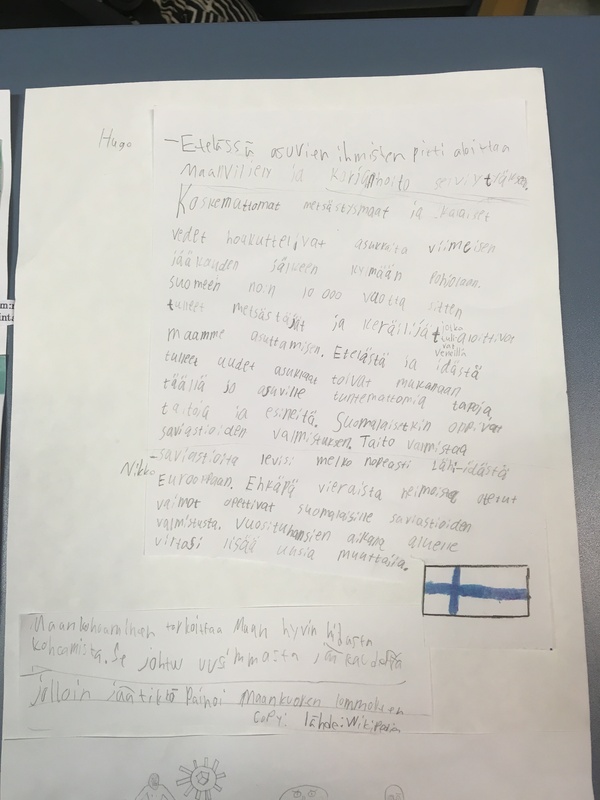 Hugo
–Etelässä asuvien ihmisten piti aloittaa
maanviljely ja karjanhoito selviytyäkseen.
Koskemattomat metsästysmaat ja kalaiset
vedet houkuttelivat asukkaita viimeisen
jääkauden jälkeen kylmään Pohjolaan.
Suomeen noin 10 000 vuotta sitten
tulleet metsästäjät ja keräilijät jotka tulivat veneillä aloittivat
maamme asuttamisen. Etelästä ja idästä
tulleet uudet asukkaat toivat mukanaan
täällä jo asuville tuntemattomia tapoja,
taitoja ja esineitä. Suomalaisetkin oppivat
saviastioiden valmistuksen. Taito valmistaa
–saviastioita levisi melko nopeasti Lähi-idästä
Nikko
Eurooppaan. Ehkäpä vieraista heimoista otetut
vaimot opettivat suomalaisille saviastioiden
valmistusta. Vuosituhansien aikana alueelle
virtasi lisää uusia muuttajia.
Maankohoaminen tarkoittaa Maan hyvin hidasta
kohoamista. Se johtuu viimmeista jääkaudesta
jolloin jäätikkö Painoi Maankuoren lommolleen
Copy: lähde: Wikipedia